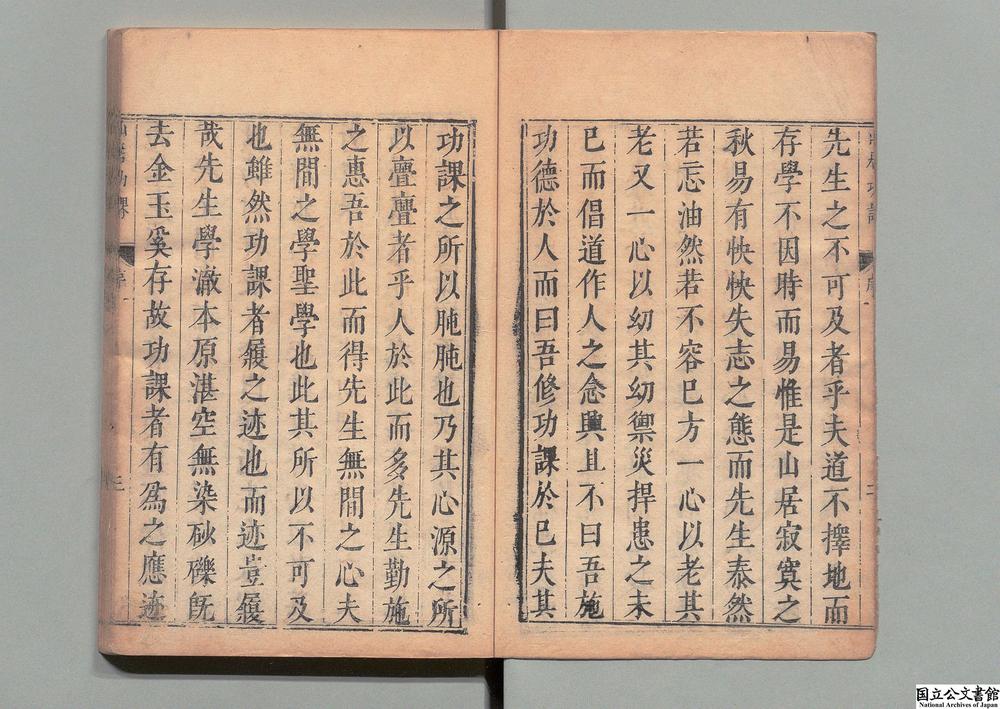 先生之不可及者乎夫道不擇地而
存學不因時而易惟是山居寂寞之
秋易有怏怏失志之態而先生泰然
若忘油然若不容已方一心以老其
老又一心以幼其幼禦災捍患之未
已而倡道作人之念興且不曰吾施
功德於人而曰吾修功課於已夫其
功課之所以肫肫也乃其心源之所
以亹亹者乎人於此而多先生勤施
之惠吾於此而得先生無間之心夫
無間之學聖學也此其所以不可及
也雖然功課者履之迹也而迹豈履
哉先生學澈本原湛空無染砂礫旣
去金玉奚存故功課者有爲之應迹
序
二
功課
序
三
国立公文書館
National Archives of Japan